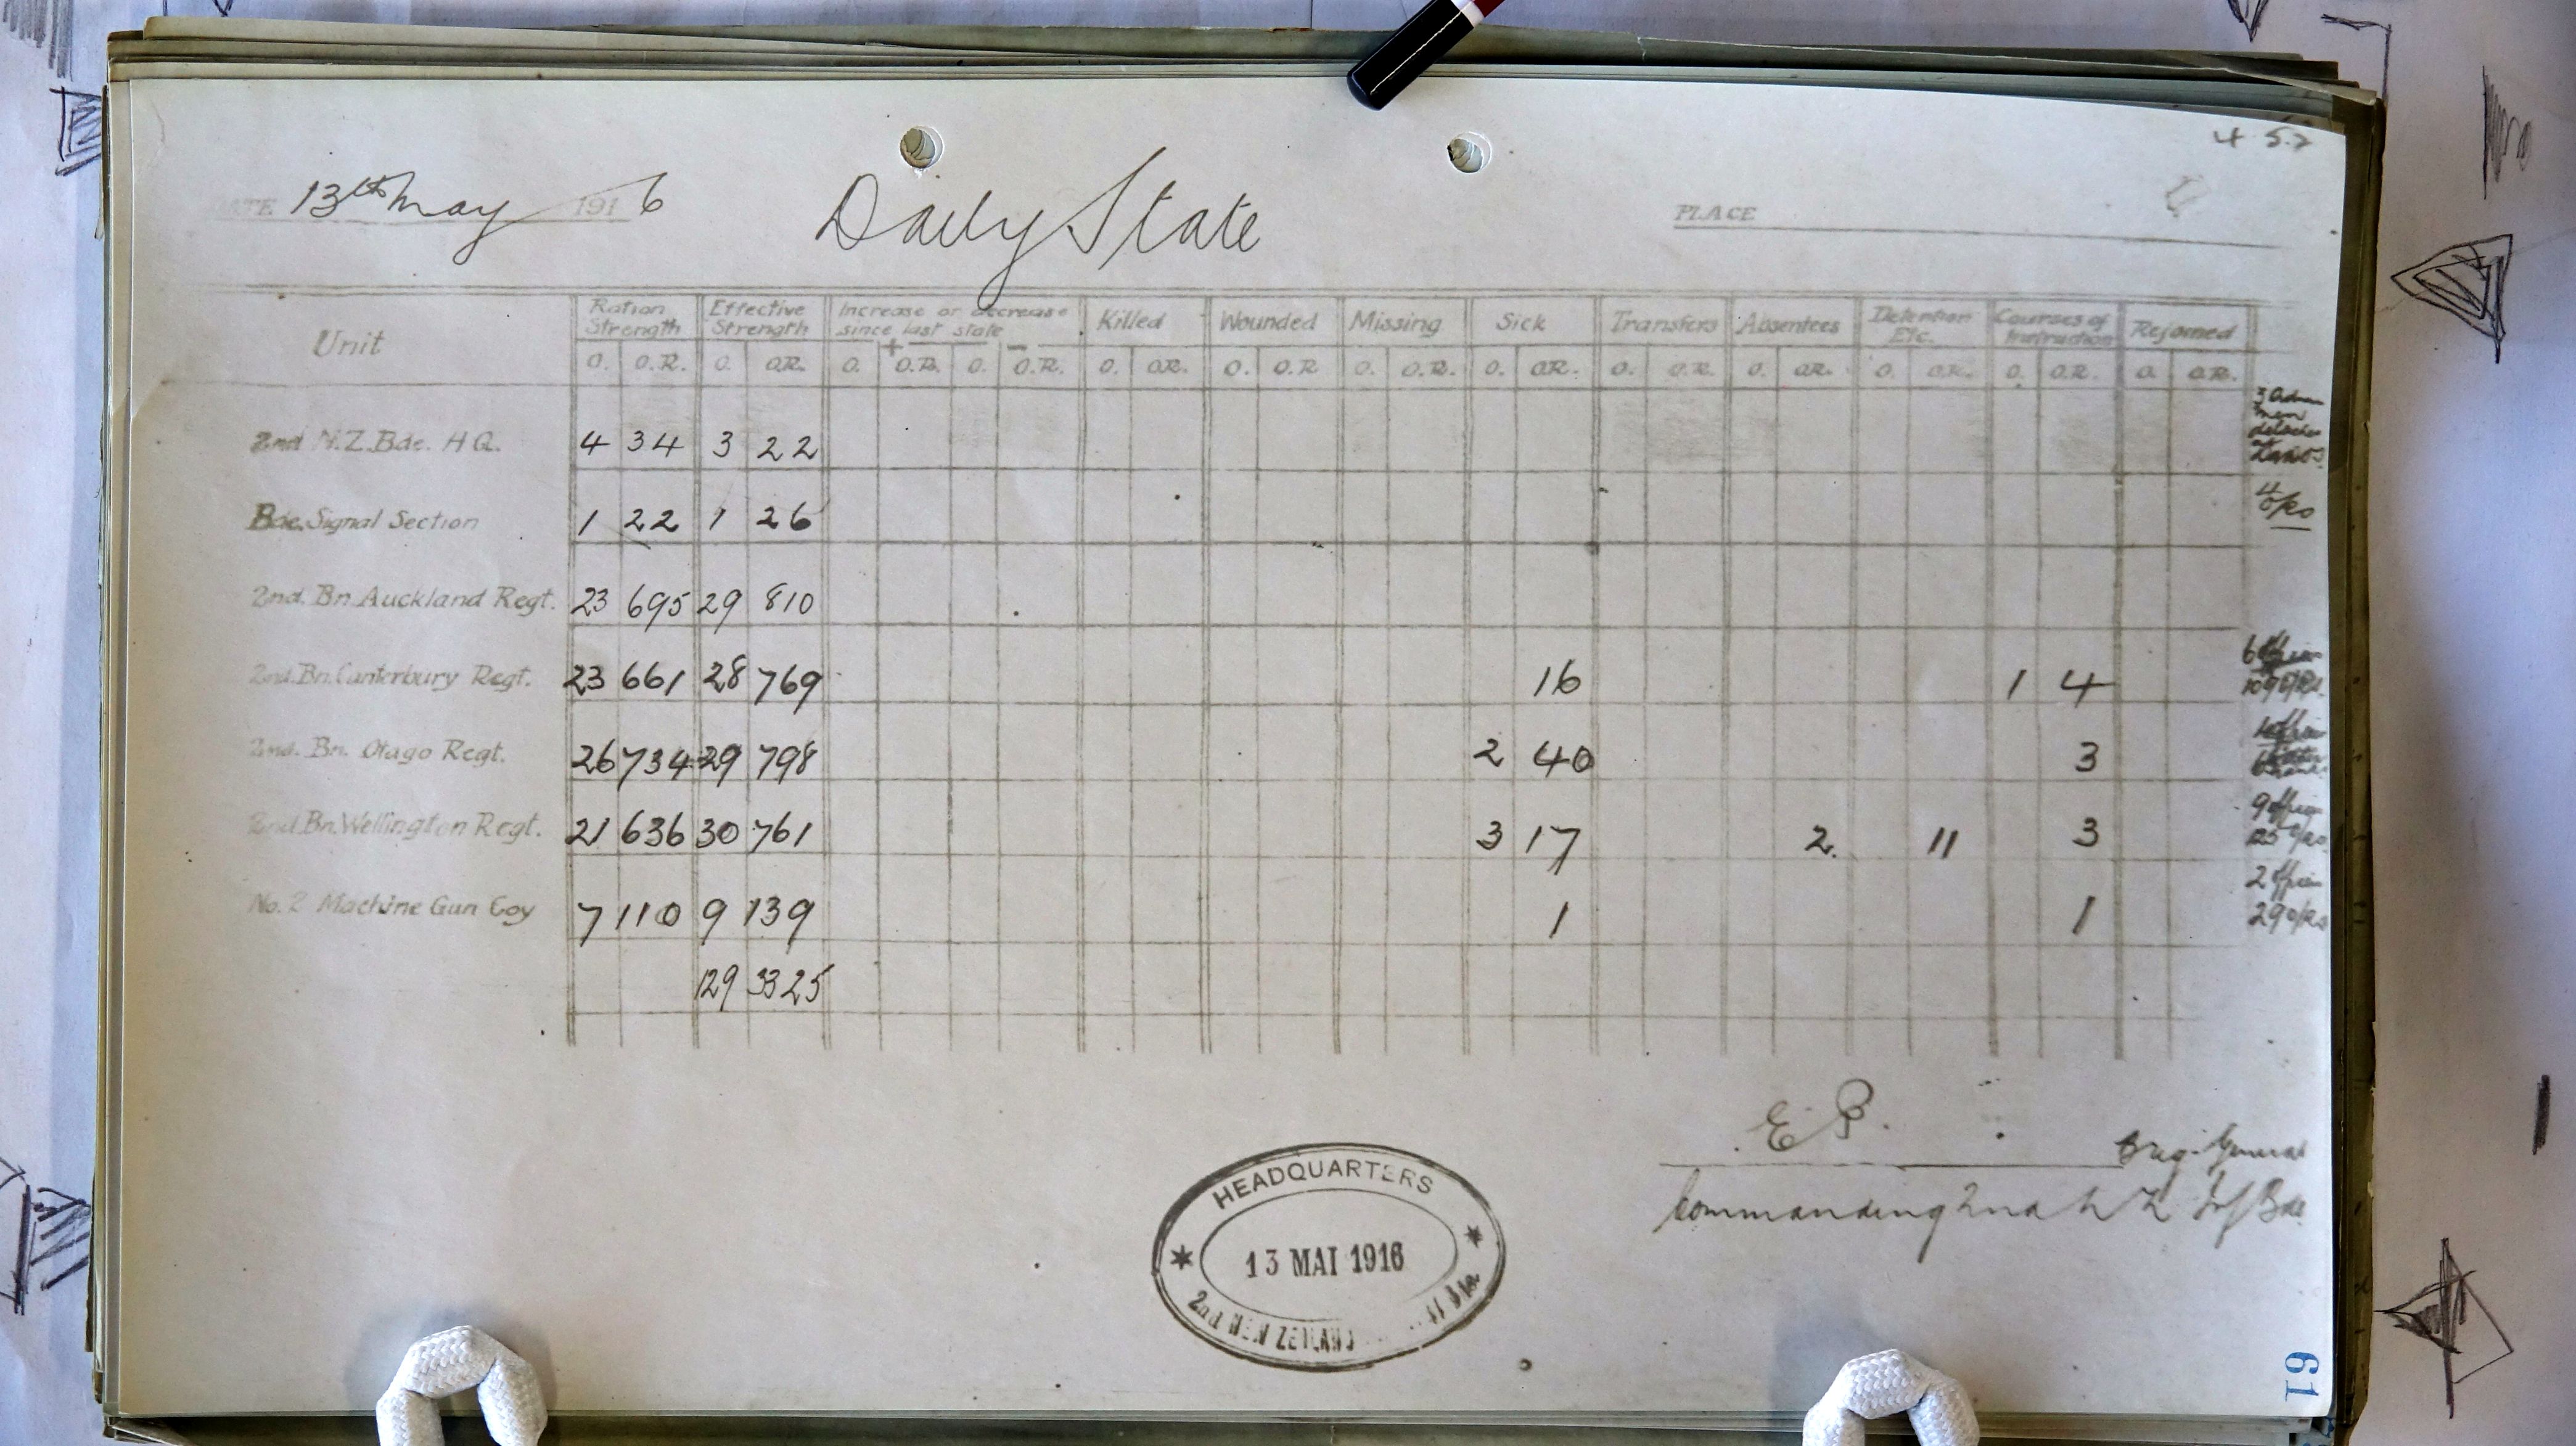 4 5.7
DATE 13th May 1916
Daily State
PLACE
Unit
Ration Strength
Effective Strength
Increase or decrease since last state
+ −
Killed
Wounded
Missing
Sick
Transfers
Absentees
Detention Etc.
Courses of Instruction
Rejoined
O. O.R. O. O.R. O. O.R. O. O.R. O. O.R. O. O.R. O. O.R. O. O.R. O. O.R. O. O.R. O. O.R. O. O.R. O. O.R.
3 men
2nd N.Z. Bde. H.Q. 4 34 3 22
Bde. Signal Section 1 22 1 26 4 O/Rs
2nd. Bn. Auckland Regt. 23 695 29 810
2nd. Bn. Canterbury Regt. 23 661 28 769 16 1 4
2nd. Bn. Otago Regt. 26 734 29 798 2 40 3
2nd. Bn. Wellington Regt. 21 636 30 761 3 17 2. 11 3 9 officers 125 O/Rs
No. 2 Machine Gun Coy 7 110 9 139 1 1 2 officers 29 O/Rs
129 3325
Brig. General
Commanding 2nd N Z Inf Bde
HEADQUARTERS
13 MAI 1916
2nd NEW ZEALAND
61